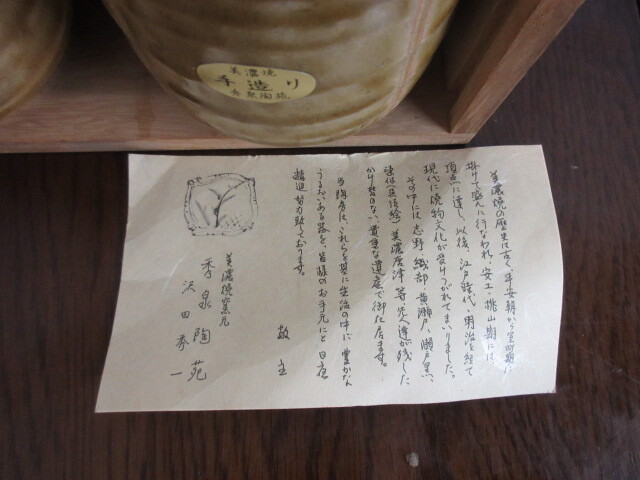 美濃焼
手造り
秀泉陶苑
美濃焼の歴史は古く、平安朝から室町期に
掛けて盛んに行なわれ、安土・桃山期には
頂点に達し、以後、江戸時代・明治を経て
現代に焼物文化が受けつがれてまいりました。
その中には志野・織部・黄瀬戸、瀬戸黒、
美濃唐津等先人達が残した
かけ替えのない貴重な遺産で御ざ居ます。
当陶房は、これらを基に生活の中に豊かな
うるおいある器を、皆様のお手元にと日夜
精進努力致しております。
敬主
美濃焼窯元
秀泉陶苑
沢田秀一